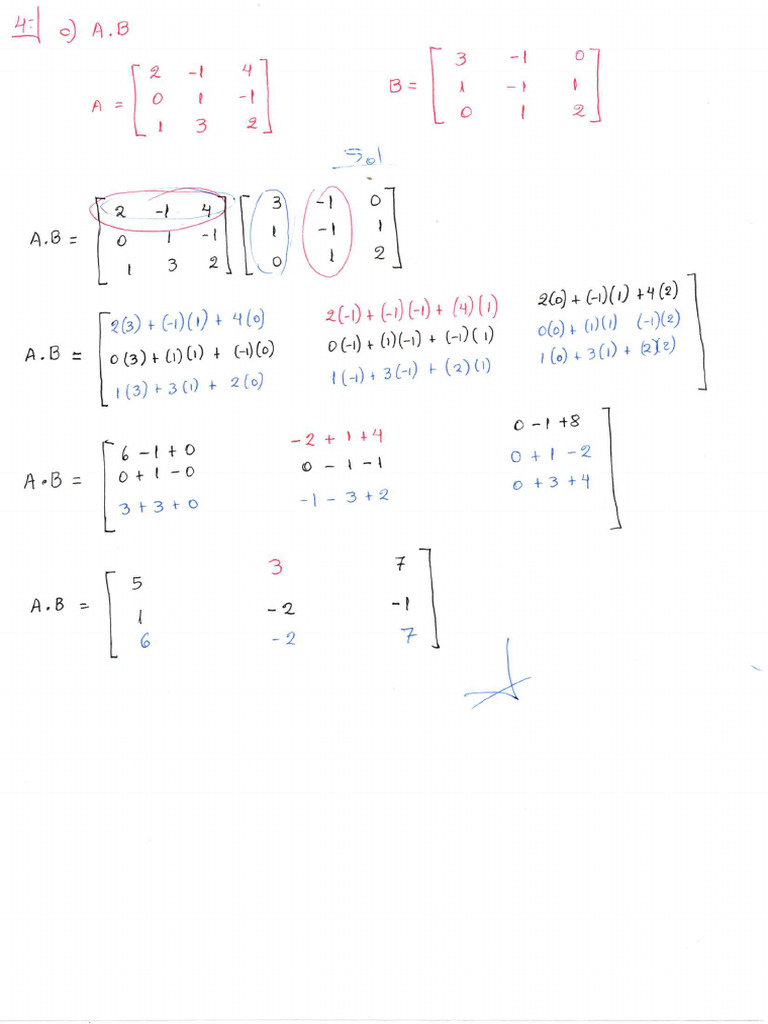 4:| c) A.B
A = [ 2 -1 4
0 1 -1
1 3 2 ]
B = [ 3 -1 0
1 -1 1
0 1 2 ]
Sol
A.B = [ 2 -1 4
0 1 -1
1 3 2 ] [ 3 -1 0
1 -1 1
0 1 2 ]
A.B = [ 2(3) + (-1)(1) + 4(0) 2(-1) + (-1)(-1) + (4)(1) 2(0) + (-1)(1) + 4(2)
0(3) + (1)(1) + (-1)(0) 0(-1) + (1)(-1) + (-1)(1) 0(0) + (1)(1) (-1)(2)
1(3) + 3(1) + 2(0) 1(-1) + 3(-1) + (2)(1) 1(0) + 3(1) + (2)(2) ]
A.B = [ 6 - 1 + 0 -2 + 1 + 4 0 - 1 + 8
0 + 1 - 0 0 - 1 - 1 0 + 1 - 2
3 + 3 + 0 -1 - 3 + 2 0 + 3 + 4 ]
A.B = [ 5 3 7
1 -2 -1
6 -2 7 ]